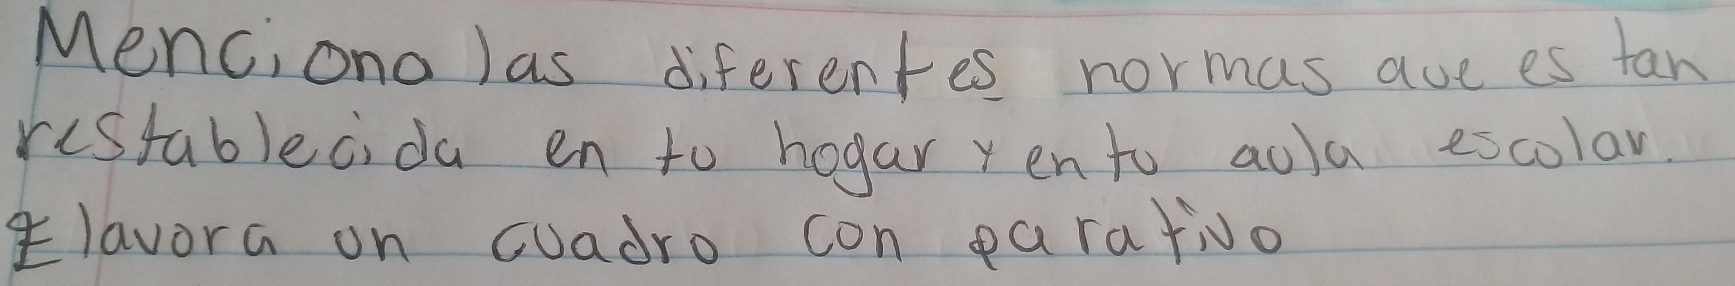 Menciona las diferentes normas que es tan
restablecida en tu hogar y en tu aula escolar.
Elavora un cuadro con parativo